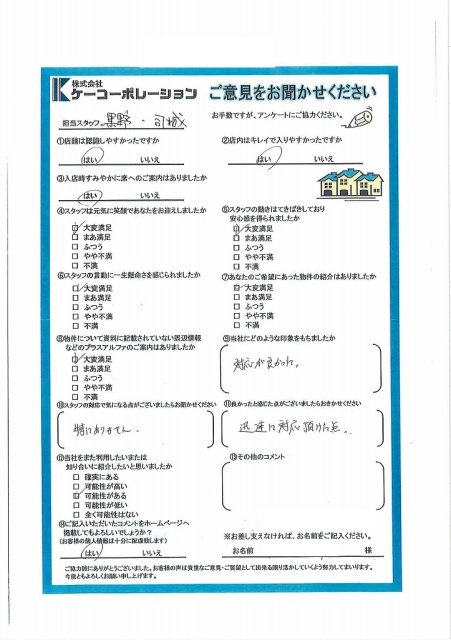 株式会社
ケーコーポレーション ご意見をお聞かせください
担当スタッフ 黒野・司城 お手数ですが、アンケートにご協力ください。
①店舗は認識しやすかったですか ②店内はキレイで入りやすかったですか
はい いいえ はい いいえ
③入店時すみやかに席へのご案内はありましたか
はい いいえ
④スタッフは元気に笑顔であなたをお迎えしましたか ⑤スタッフの動きはてきぱきしており
安心感を得られましたか
大変満足 大変満足
まあ満足 まあ満足
ふつう ふつう
やや不満 やや不満
不満 不満
⑥スタッフの言動に一生懸命さを感じられましたか ⑦あなたのご希望にあった物件の紹介はありましたか
大変満足 大変満足
まあ満足 まあ満足
ふつう ふつう
やや不満 やや不満
不満 不満
⑧物件について資料に記載されていない周辺情報 ⑨当社にどのような印象をもちましたか
などのプラスアルファのご案内はありましたか
大変満足 対応が良かった。
まあ満足
ふつう
やや不満
不満
⑩スタッフの対応で気になる点がございましたらお聞かせください ⑪良かったと感じた点がございましたらおきかせください
特にありません。 迅速に対応頂けた点。
⑫当社をまた利用したいまたは ⑬その他のコメント
知り合いに紹介したいと思いましたか
確実にある
可能性が高い
可能性がある
可能性が低い
全く可能性はない
⑭ご記入いただいたコメントをホームページへ
掲載してもよろしいでしょうか? ※お差し支えなければ、お名前をご記入ください。
(お客様の個人情報は十分に配慮致します)
はい いいえ お名前 様
ご協力誠にありがとうございました。お客様の声は貴重なご意見・ご要望として出来る限り活かしていくよう努力してまいります。
今後ともよろしくお願い申し上げます。